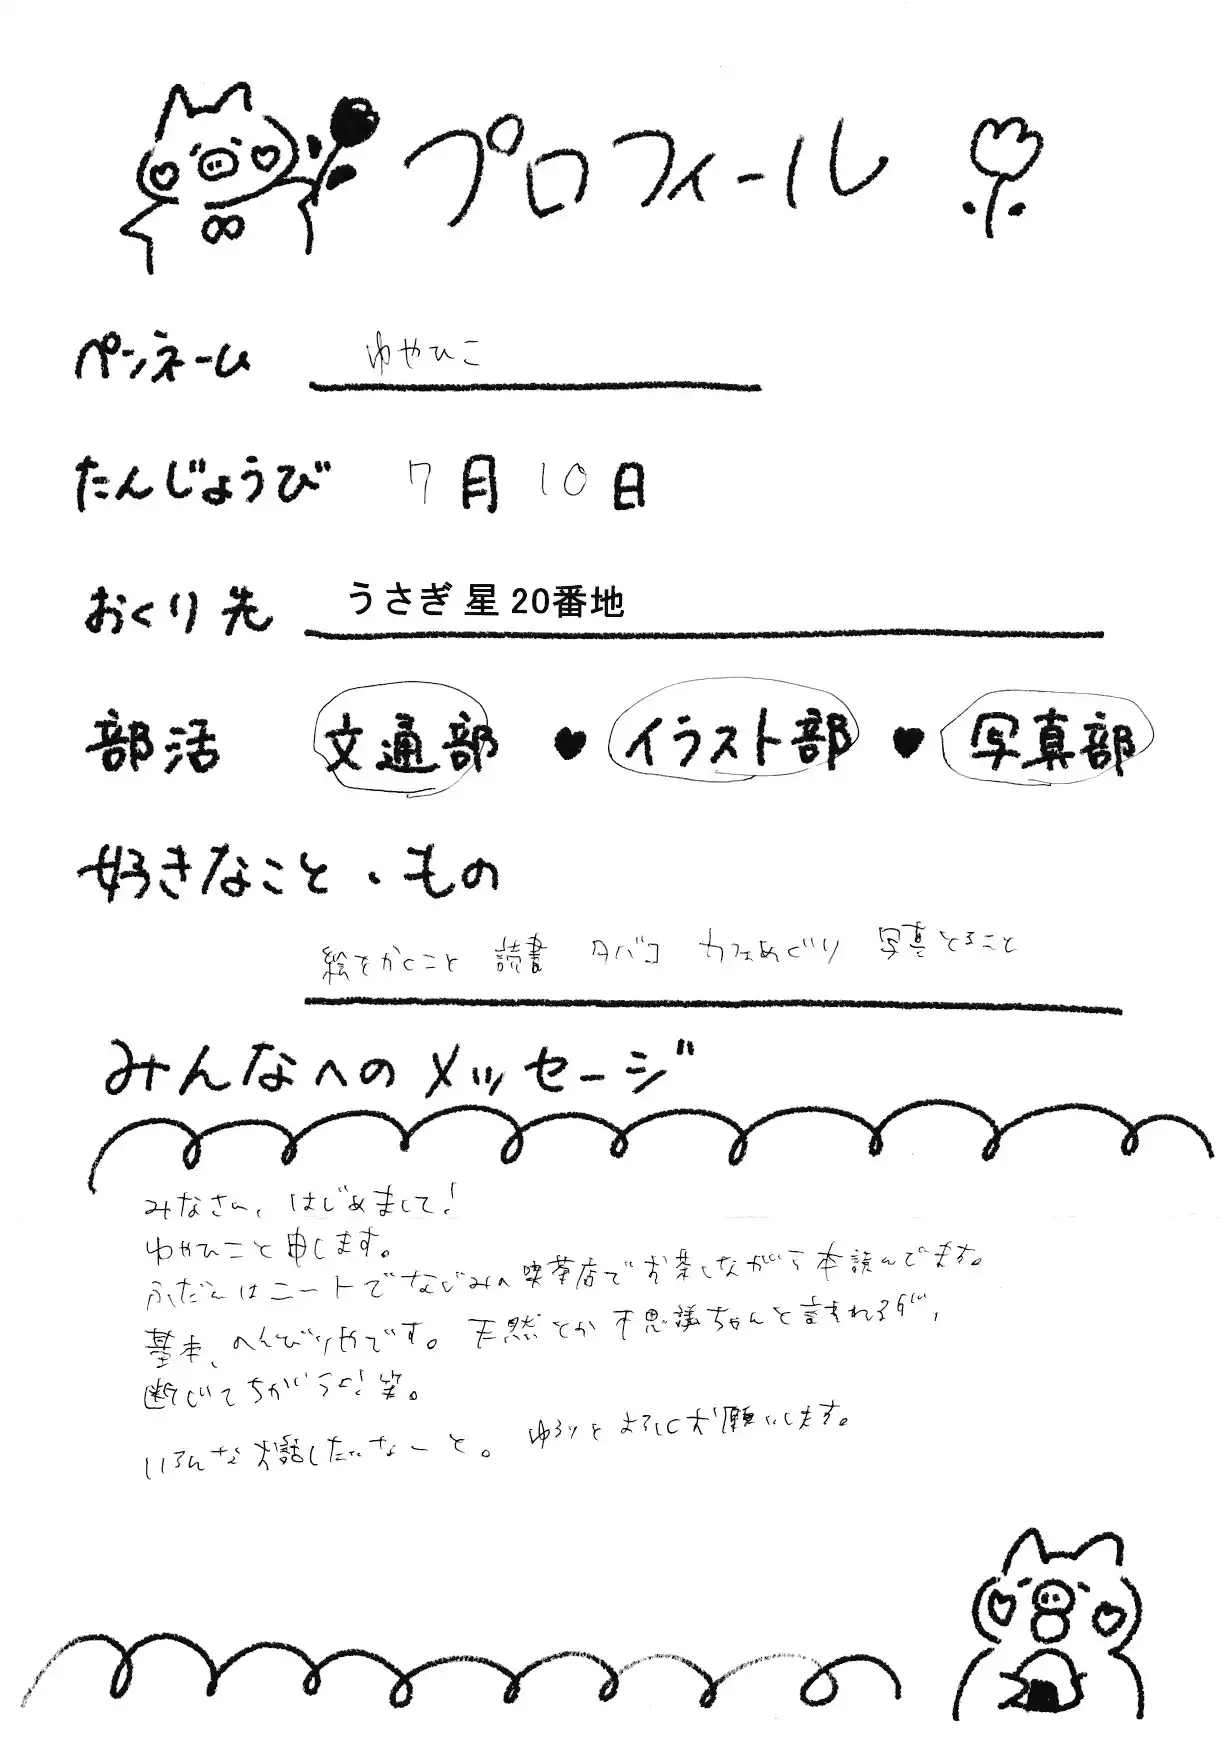 プロフィール
ペンネーム ゆやひこ
たんじょうび 7月10日
おくり先 うさぎ星20番地
部活 文通部 ♥ イラスト部 ♥ 写真部
好きなこと・もの
絵をかくこと 読書 タバコ カフェめぐり 写真とること
みんなへのメッセージ
みなさん、はじめまして!
ゆやひこと申します。
ふだんはニートでなじみの喫茶店でお茶しながら本読んでます。
基本、のんびりやです。天然とか不思議ちゃんと言われるが、
断じてちがうよ!笑。
いろんなお話したいなーと。ゆるりとよろしくお願いします。